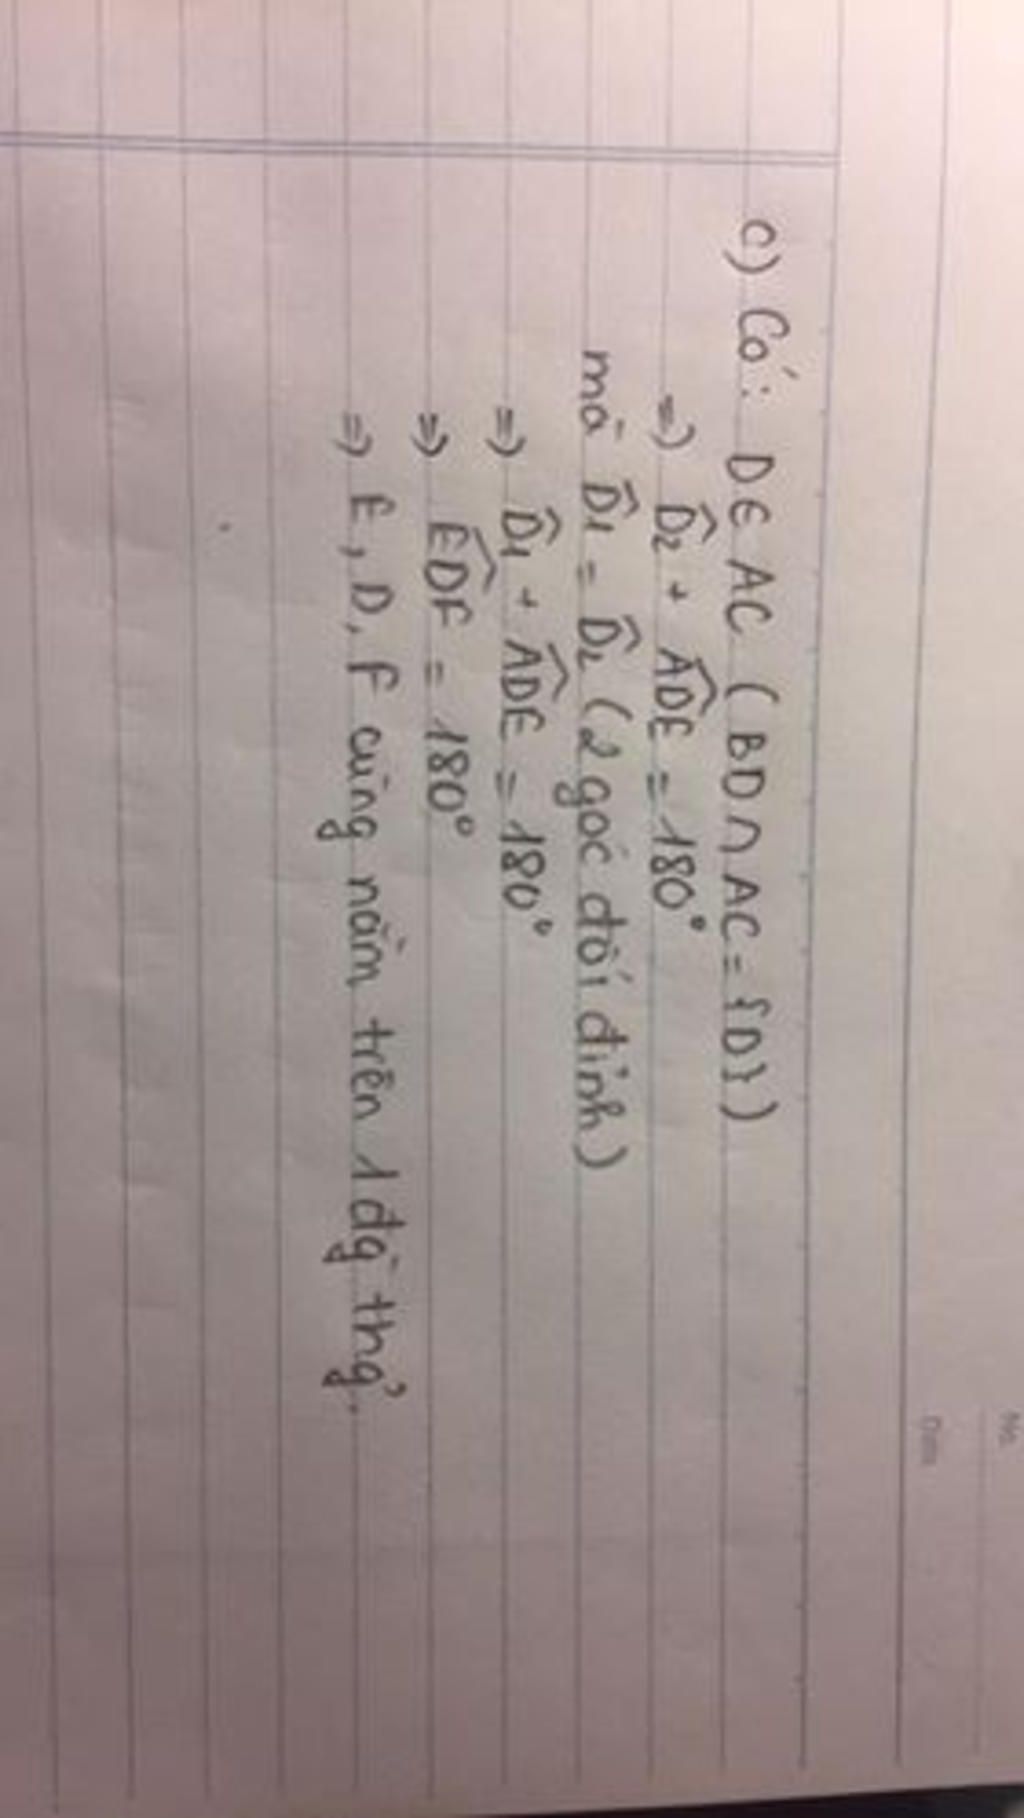 No.
Date
c) Có: D∈ AC ( BD ∩ AC = {D} )
=) D̂₂ + ÂDE = 180°
mà D̂₁ = D̂₂ (2 góc đối đỉnh)
=) D̂₁ + ÂDE = 180°
=) ÊDF = 180°
=) E, D, F cùng nằm trên 1 đg̀ thg̉.